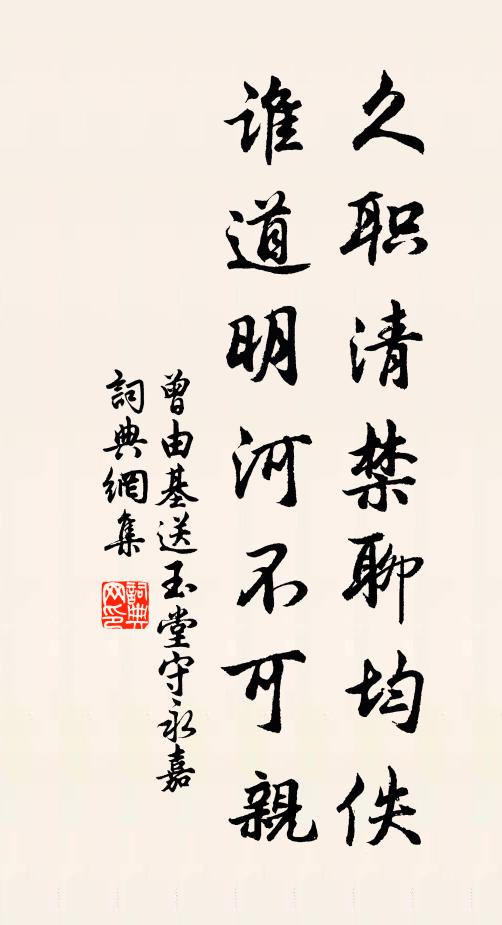 久职清禁聊均佚
谁道明河不可親
曾由基送玉堂守永嘉
詞典網集
詞典
网印